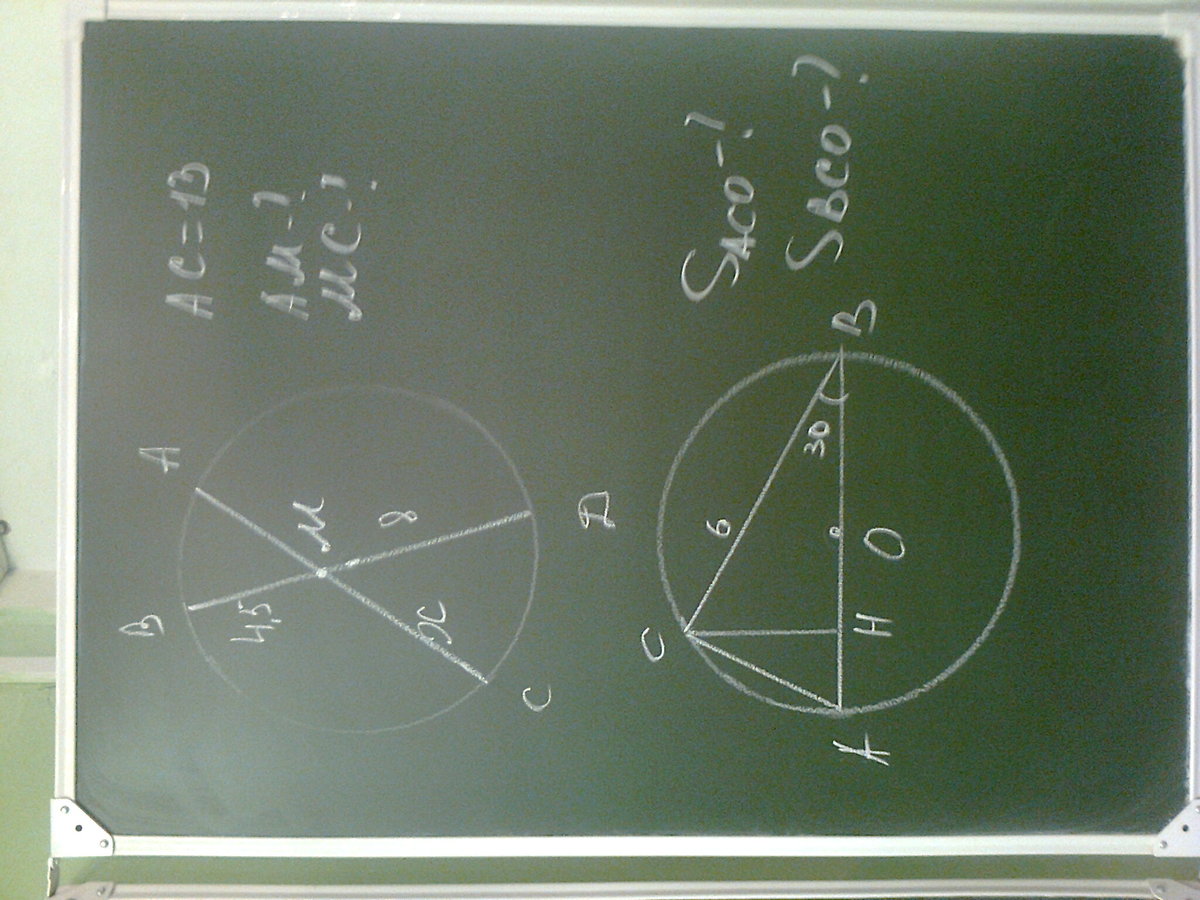 AC = 13
AM - ?
MC - ?
A
B
M
4,5
8
x
C
D
S ACO - ?
S BCO - ?
C
6
30
B
A
H
O